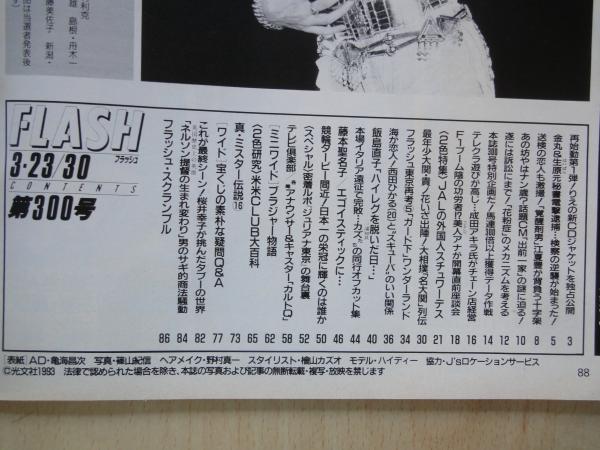 利克
雄 島根・舟木一
藤美佐子 新潟・
品は当選者発表後
FLASH
フラッシュ
3・23/30
CONTENTS
第300号
再始動第1弾!りえの新CDジャケットを独占公開 3
金丸&生原元秘書電撃逮捕…検察の逆襲が始まった! 5
送検の恋人も激撮!“覚醒剤男”江夏豊が背負う十字架 8
あの坊やはナン歳?話題CM「出前一家」の謎に迫る! 10
遂には訴訟にまで!「花粉症」のメカニズムを考える 12
本誌300号特別企画だ!馬連300倍以上獲得データ作戦 14
テレクラ遊びが高じ…成田アキラ氏がチェーン店経営 16
F-1ブーム陰の功労者!?美人アナが開幕直前座談会 18
〈2色特集〉JALの外国人スチュワーデス 21
最年少大関・貴ノ花いざ出陣!大相撲「名大関」列伝 30
フラッシュ東京再考⑤“ガード下”ワンダーランド 34
海が恋人!西田ひかる(20)と“スキューバ”のいい関係 36
飯島直子「ハイレグを脱いだ日…」 40
本場イタリア遠征で完敗…“カズ”との同行オフカット集 44
藤本聖名子 エゴイスティックに… 46
競輪ダービー間近!日本一の栄冠に輝くのは誰か 50
〈スペシャル〉密着ルポ「ジュリアナ東京」の舞台裏 52
テレビ倶楽部 アナウンサー&キャスター「カルトQ」 58
[ミニワイド]ブラジャー物語 62
〈2色研究〉米米CLUB大百科 65
真・ミスター伝説16 73
[ワイド]宝くじの素朴な疑問Q&A 77
これが最終シーン!桜井幸子が挑んだタブーの世界 82
「ネルソン提督の生まれ変わり」男のサギ的商法騒動 84
フラッシュ・スクランブル 86
[表紙]AD・亀海昌次 写真・篠山紀信 ヘアメイク・野村真一 スタイリスト・檜山カズオ モデル・ハイディー 協力・J'sロケーションサービス
©光文社1993 法律で認められた場合を除き、本誌の写真および記事の無断転載・複写・放映を禁じます
88